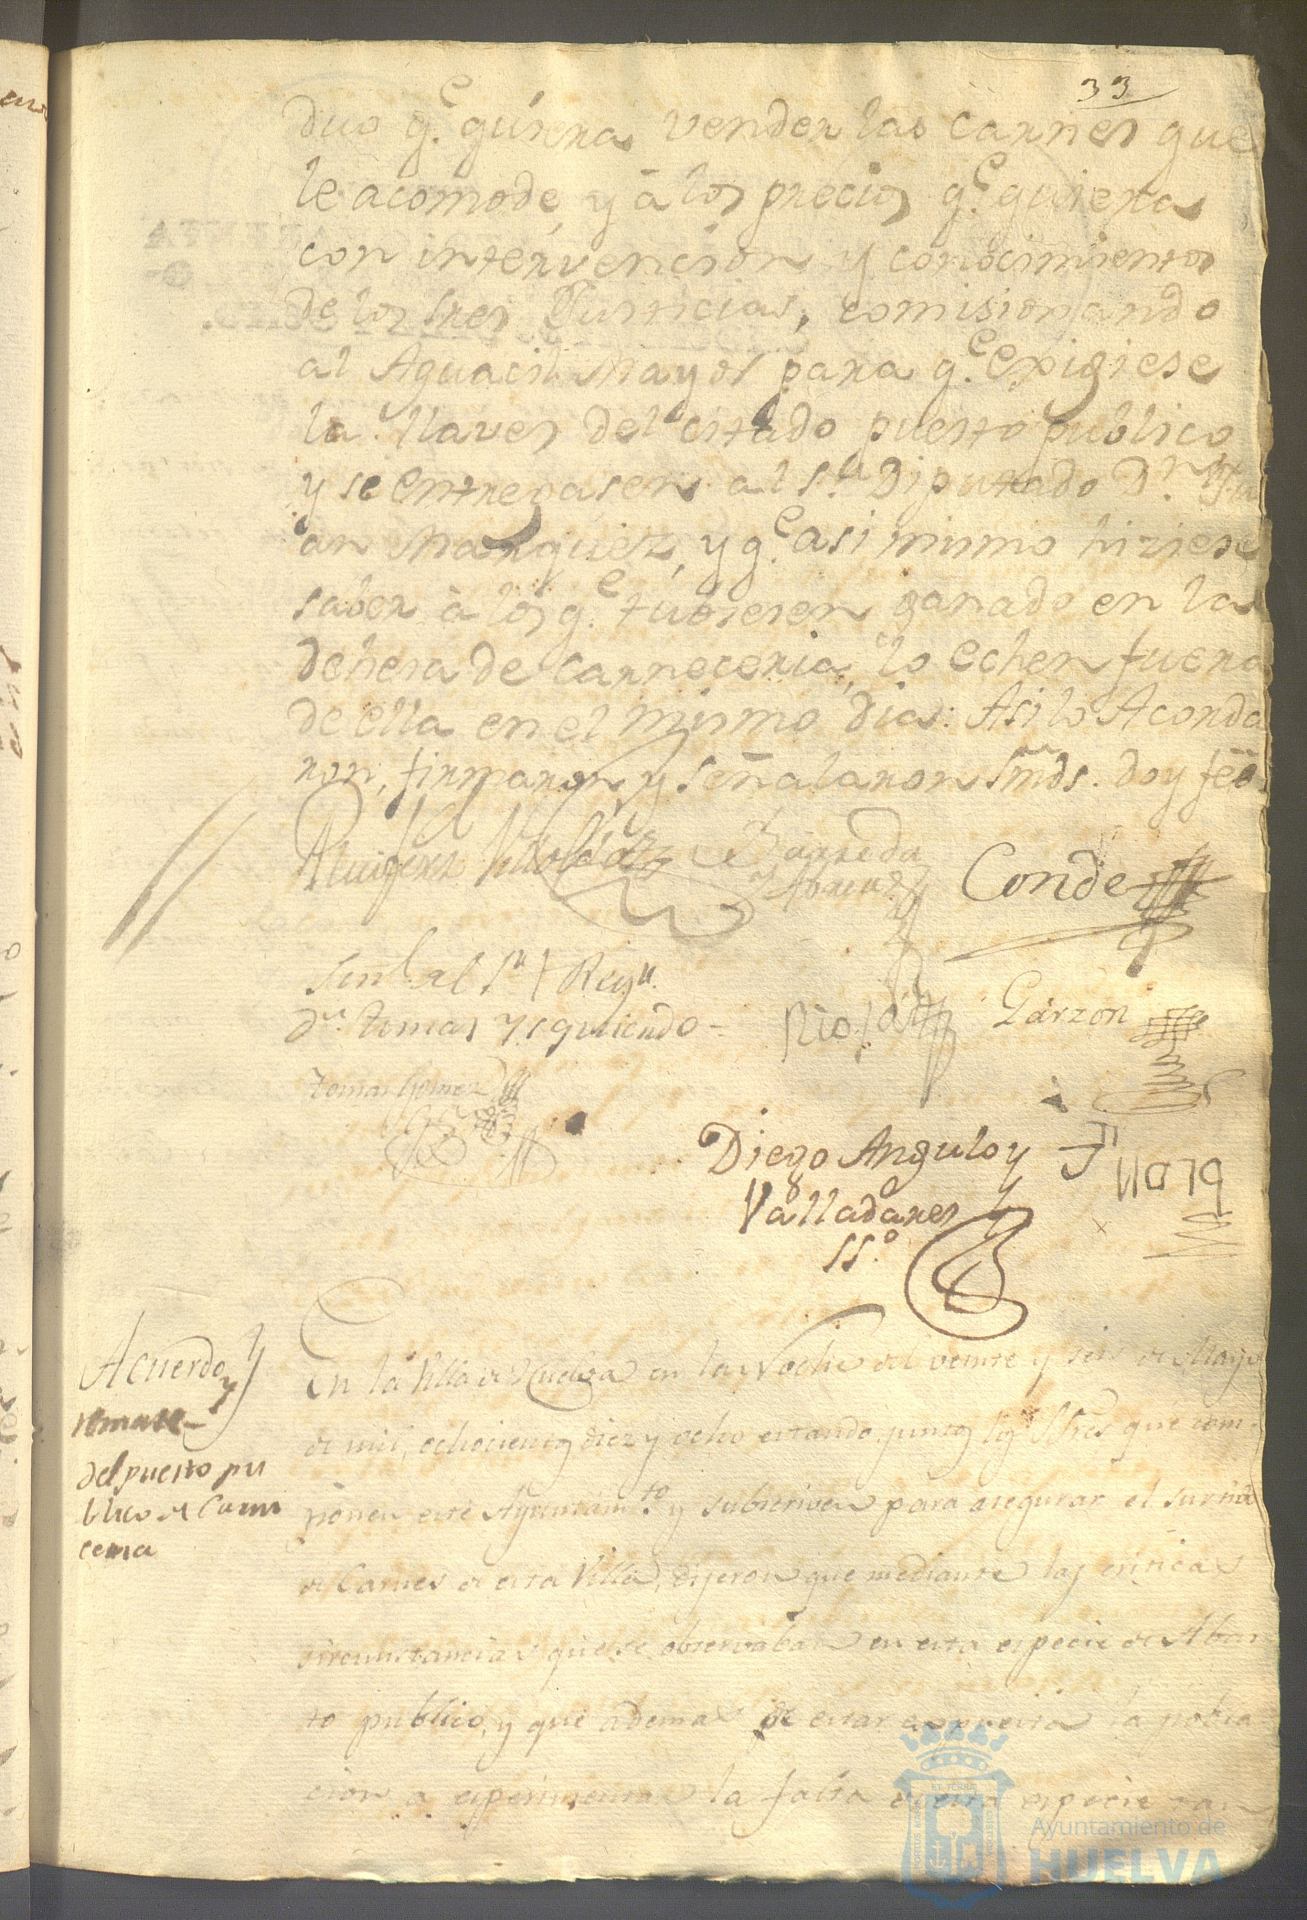 33
duo q.e quisiera vender las carnes que
le acomode, y à los precios q.e quiera
con intervencion y conocimiento
de los Sres Justicias, comisionando
al Aguacil Mayor para q.e exigiese
la llaves del citado puesto publico
y se entregasen al S.r Diputado D.n Ju
an Marquez, y q.e asi mismo hiziese
saber à los q.e tubiesen ganado en la
dehesa de carneceria, lo echen fuera
de ella en el mismo dia: Asi lo Acorda
ron, firmaron, y señalaron Smds. doy feé
Barreda
Conde
Señl. al S.r Reg.r
D.n Tomas Ysquierdo =
Garzon
Tomas Gomez
Diego Angulo y
Valladares
SS.o
Acuerdo y
remate
del puesto pu
blico de Carni
ceria
En la Villa de Huelva en la Noche del veinte y seis de Mayo
de mil, ochocientos diez y ocho estando juntos los SSres que com
ponen este Ayuntam.to y subscriven para asegurar el surtido
de Carnes de esta Villa, dijeron que mediante las criticas
circunstancias que se observaban en esta especie de Abas
to publico, y que ademas de estar expuesta la pobla
cion a esperimentar la falta de esta especie tan
Ayuntamiento de
HUELVA